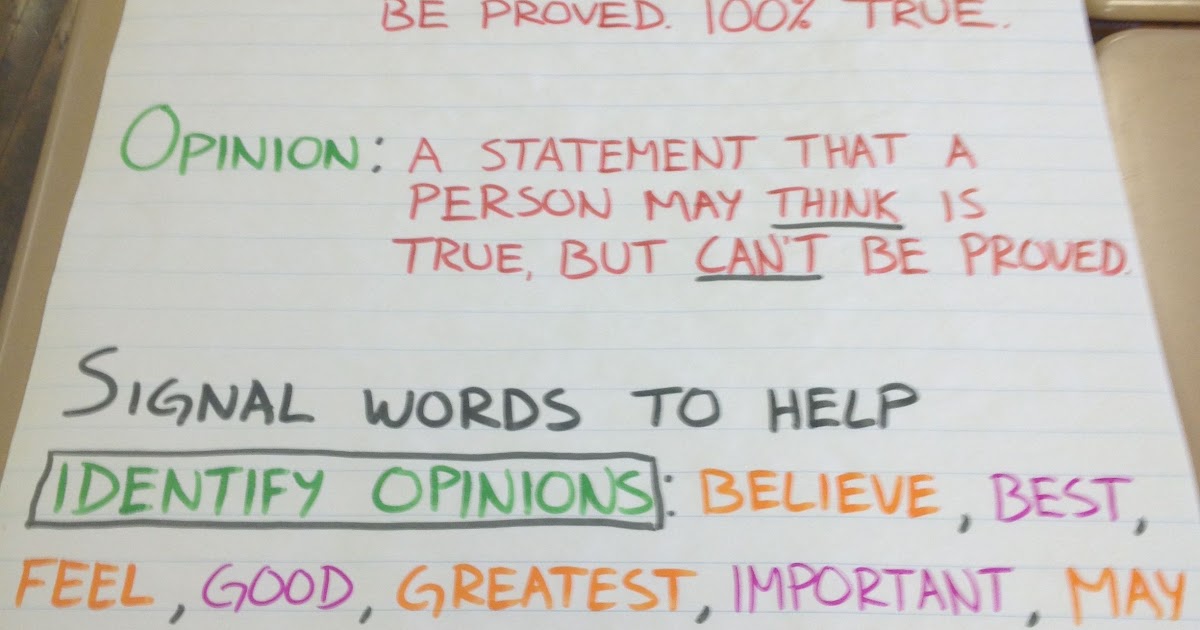 BE PROVED. 100% TRUE.
OPINION: A STATEMENT THAT A
PERSON MAY THINK IS
TRUE, BUT CAN'T BE PROVED.
SIGNAL WORDS TO HELP
IDENTIFY OPINIONS: BELIEVE, BEST,
FEEL, GOOD, GREATEST, IMPORTANT, MAY